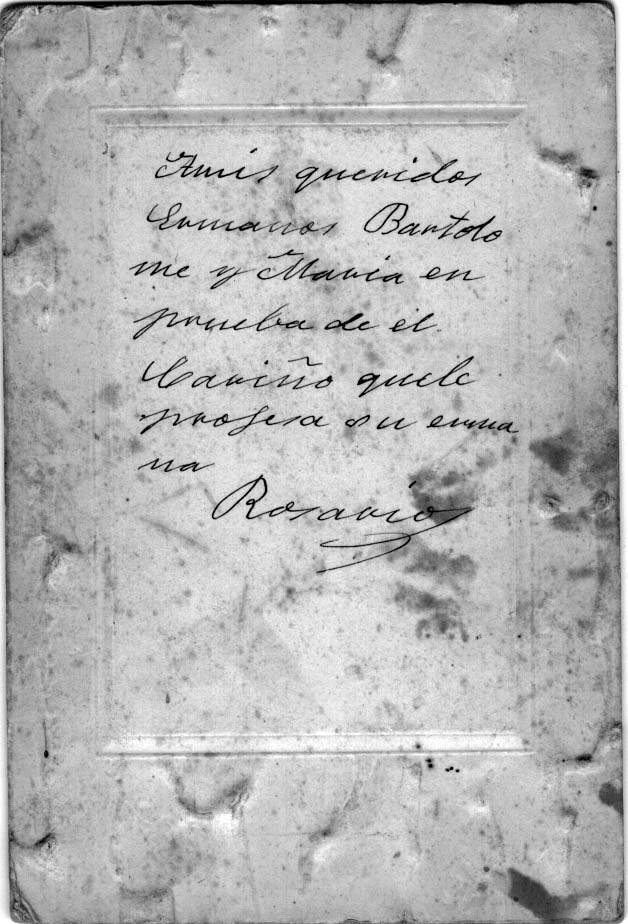 Amis queridos
Ermanos Bartolo
me y Maria en
prueba de el
Cariño quele
profesa su erma
na
Rosario